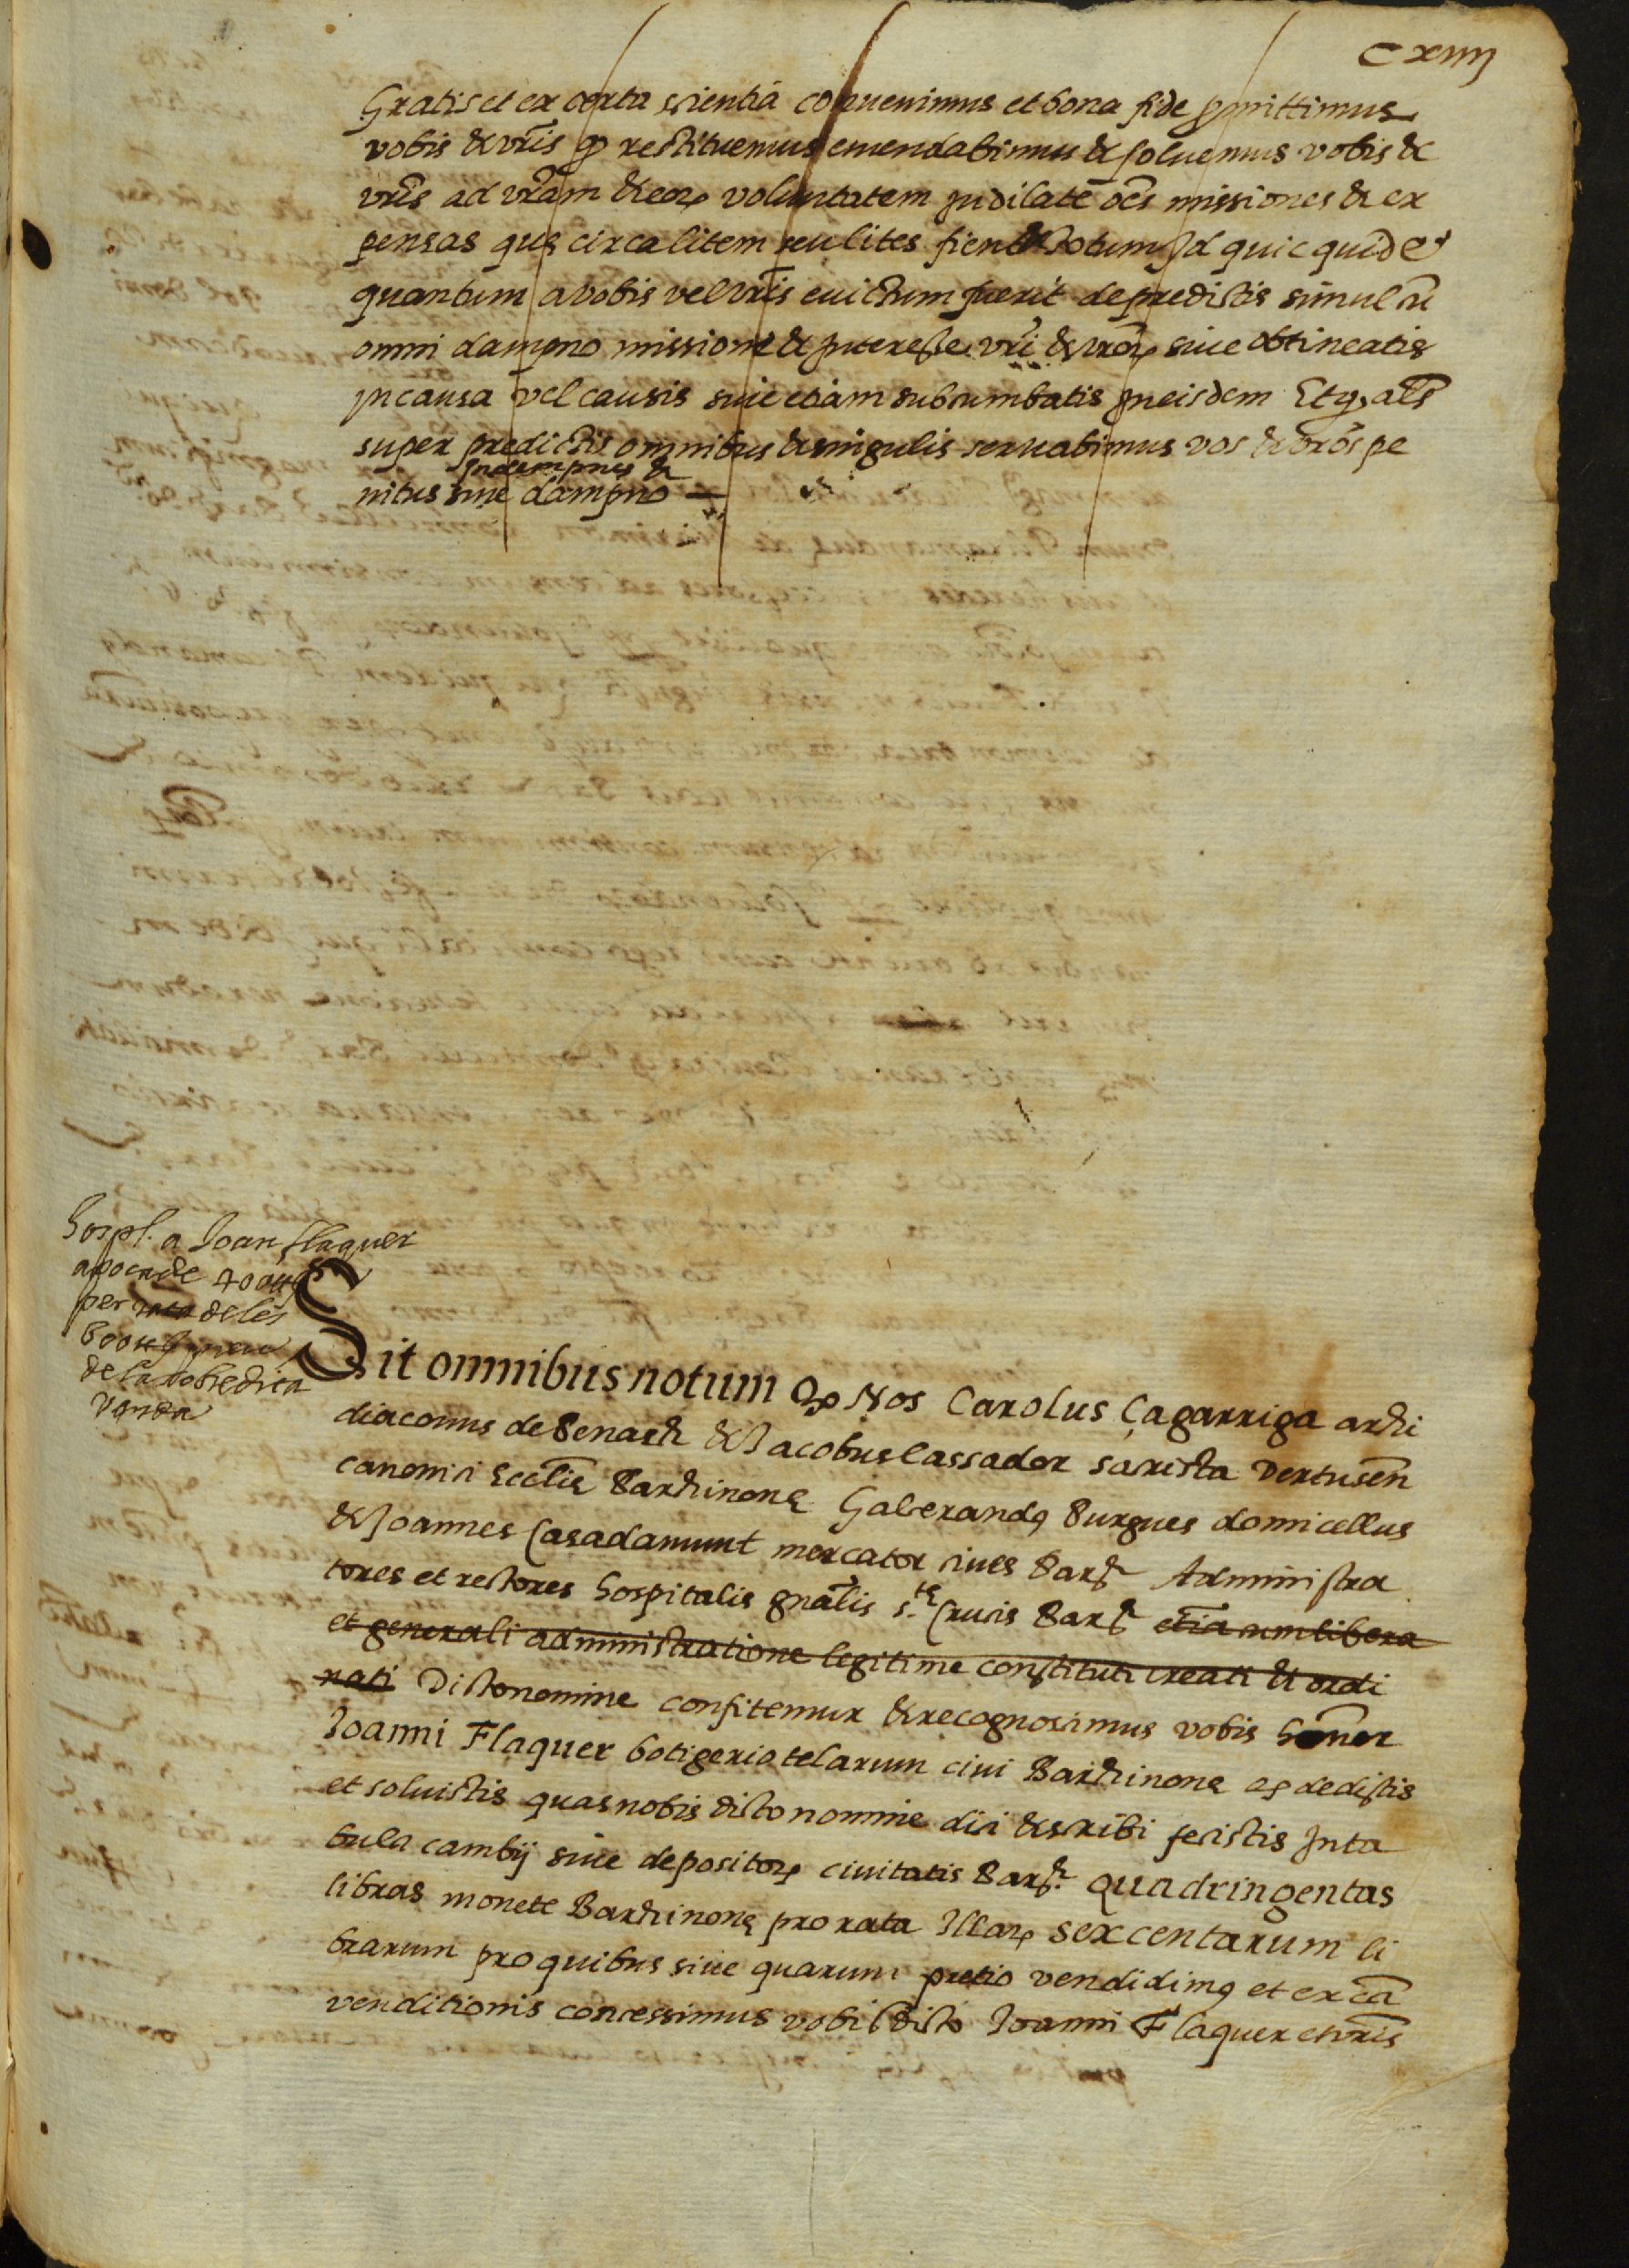 Cxiiij
Gratis et ex certa scientia conuenimus et bona fide promittimus
vobis & vr̄is ꝙ restituemus emendabimus & soluemus vobis &
vr̄is ad vr̄am & eoꝝ voluntatem indilate oēs missiones & ex
pensas quę circa litem seu lites fient & totum id quicquid et
quantum a vobis vel vr̄is euictum fuerit de predictis simul cū
omni dampno missione & interesse vr̄i & vr̄oꝝ siue obtineatis
in causa vel causis siue etiam subcumbatis in eisdem Etqꝫ al̄s
super predictis omnibus & singulis seruabimus vos & vr̄os pe
indempnes &
nitus sine dampno
hospl. a Joan flaquer
apoca de 400 ll
per rata de les
600 ll
de la sobredita
venda
Sit omnibus notum ꝙ Nos Carolus Çagarriga archi
diaconus de Benasch & Jacobus Cassador sacrista Dertuseñ
canonici Eccl̄ię Barchinonę Galcerandꝯ Burgues domicellus
& Joannes Casadamunt mercator ciues Barch̄ Administra
tores et rectores hospitalis gñalis s.tę Crucis Barch̄ etiā cum libera
et generali administratione legitime constituti creati & ordi
nati Dicto nomine confitemur & recognoscimus vobis honor
Joanni Flaquer botigerio telarum ciui Barchinonę ꝙ dedistis
et soluistis quas nobis dicto nomine dici & scribi fecistis Inta
bula cambij siue depositoꝝ ciuitatis Barch̄. quadringentas
libras monete Barchinonę pro rata Illaꝝ sexcentarum li
brarum pro quibus siue quarum pretio vendidimꝯ et ex cā
venditionis concessimus vobis dicto Joanni Flaquer et vr̄is